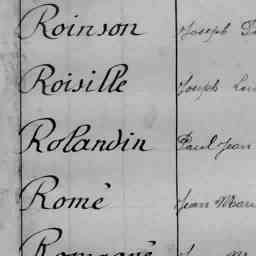 Roinson Joseph
Roisille Joseph
Rolandin Paul Jean
Romé Jean Mari
Romagné